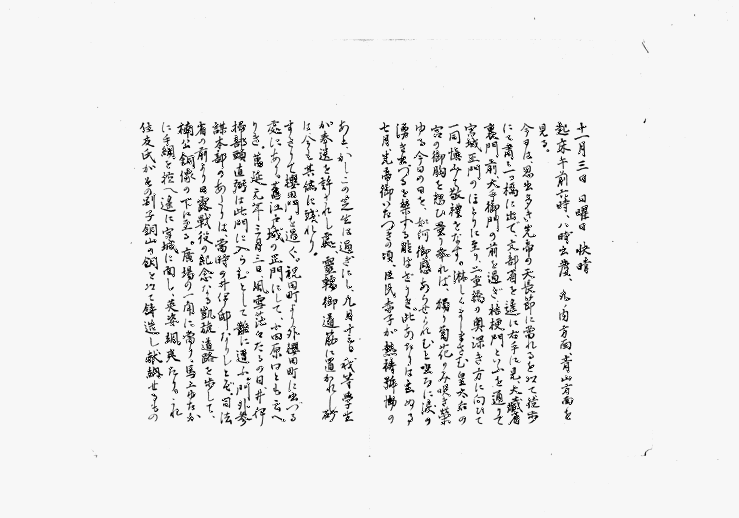 十一月三日　日曜日　快晴
起床午前六時、八時出発、丸ノ内方面青山方面を
見る。
今日は、思出多き先帝の天長節に当れるを以て徒歩
にて一橋に出で、文部省を遠に右手に見、大蔵省
裏門前大手御門の前を過ぎ、桔梗門といふを通りて
宮城正門のほとりに至り、二重橋の奥深き方に向ひて
一同慎みて敬禮をなす。淋しくましまさむ皇太后の
宮の御胸を思ひ奉れば、獨り菊花のみ咲き榮
ゆる今日の日を、如何御感あらせられむと坐ろに涙の
湧き出づるを禁ずる能はざりき。此あたりは去ぬる
七月先帝御いたつきの頃、臣民赤子が熱祷
あとかし。この芝生は過ぎにし九月十三日我等學生
が奉送を許されし處、靈轎御通筋に置かれし砂
は今も其儘に残れり。
すぎて櫻田門を過ぐ。祝田町より外櫻田町に出づる
處にあり。舊江戸城の正門にして、小田原口とも云へ
りき。萬延元年三月三日、風雪茫々たるの日井伊
掃部頭直弼は此門に入らむとして難に遭ふ。門外参
謀本部のあたりは、當時の井伊邸なりしとぞ。司法
省の前より日露戰役の紀念なる凱旋道路を歩して、
楠公銅像の下に至る。廣場の一角に當り、馬上ゆたか
に手綱を控へ遙に宮城に面し、英姿颯爽たり。これ
住友氏がその別子銅山の銅を以て鋳造し献納せるもの